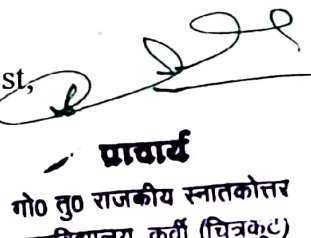 st,
प्राचार्य
गो0 तु0 राजकीय स्नातकोत्तर
महाविद्यालय कर्वी (चित्रकूट)